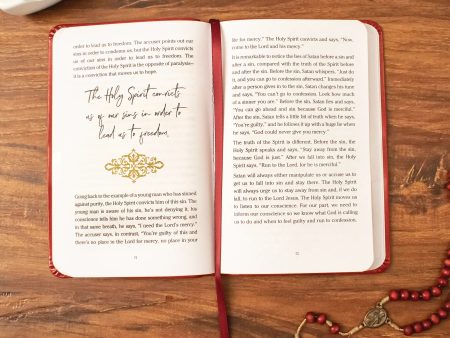 order to lead us to freedom. The accuser points out our
sins in order to condemn us, but the Holy Spirit convicts
us of our sins in order to lead us to freedom. The
conviction of the Holy Spirit is the opposite of paralysis–
it is a conviction that moves us to hope.
The Holy Spirit convicts
us of our sins in order to
lead us to freedom.
Going back to the example of a young man who has sinned
against purity, the Holy Spirit convicts him of this sin. The
young man is aware of his sin, he's not denying it, his
conscience tells him he has done something wrong, and
in that same breath, he says, "I need the Lord's mercy."
The accuser says, in contrast, "You're guilty of this and
there's no place in the Lord for mercy, no place in your
11
life for mercy." The Holy Spirit convicts and says, "Now,
come to the Lord and his mercy."
It is remarkable to notice the lies of Satan before a sin and
after a sin, compared with the truth of the Spirit before
and after the sin. Before the sin, Satan whispers, "Just do
it, and you can go to confession afterward." Immediately
after a person gives in to the sin, Satan changes his tune
and says, "You can't go to confession. Look how much
of a sinner you are." Before the sin, Satan lies and says,
"You can go ahead and sin because God is merciful."
After the sin, Satan tells a little bit of truth when he says,
"You're guilty," and he follows it up with a huge lie when
he says, "God could never give you mercy."
The truth of the Spirit is different. Before the sin, the
Holy Spirit speaks and says, "Stay away from the sin,
because God is just." After we fall into sin, the Holy
Spirit says, "Run to the Lord, for he is merciful."
Satan will always either manipulate us or accuse us to
get us to fall into sin and stay there. The Holy Spirit
will always urge us to stay away from sin and, if we do
fall, to run to the Lord Jesus. The Holy Spirit moves us
to listen to our conscience. For our part, we need to
inform our conscience so we know what God is calling
us to do and when to feel guilty and run to confession.
12